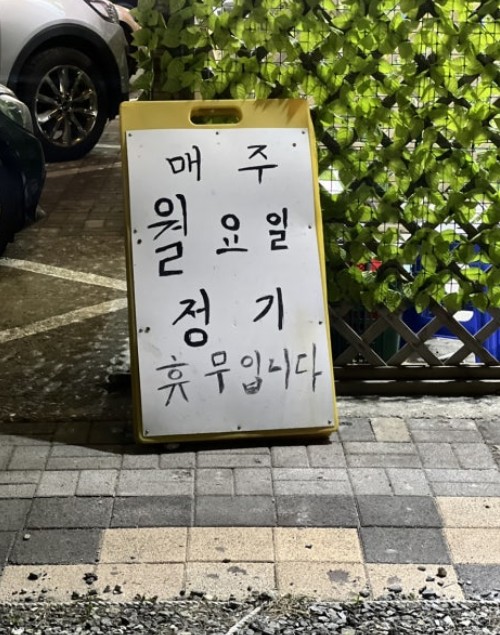 매 주
월 요 일
정 기
휴 무입니다